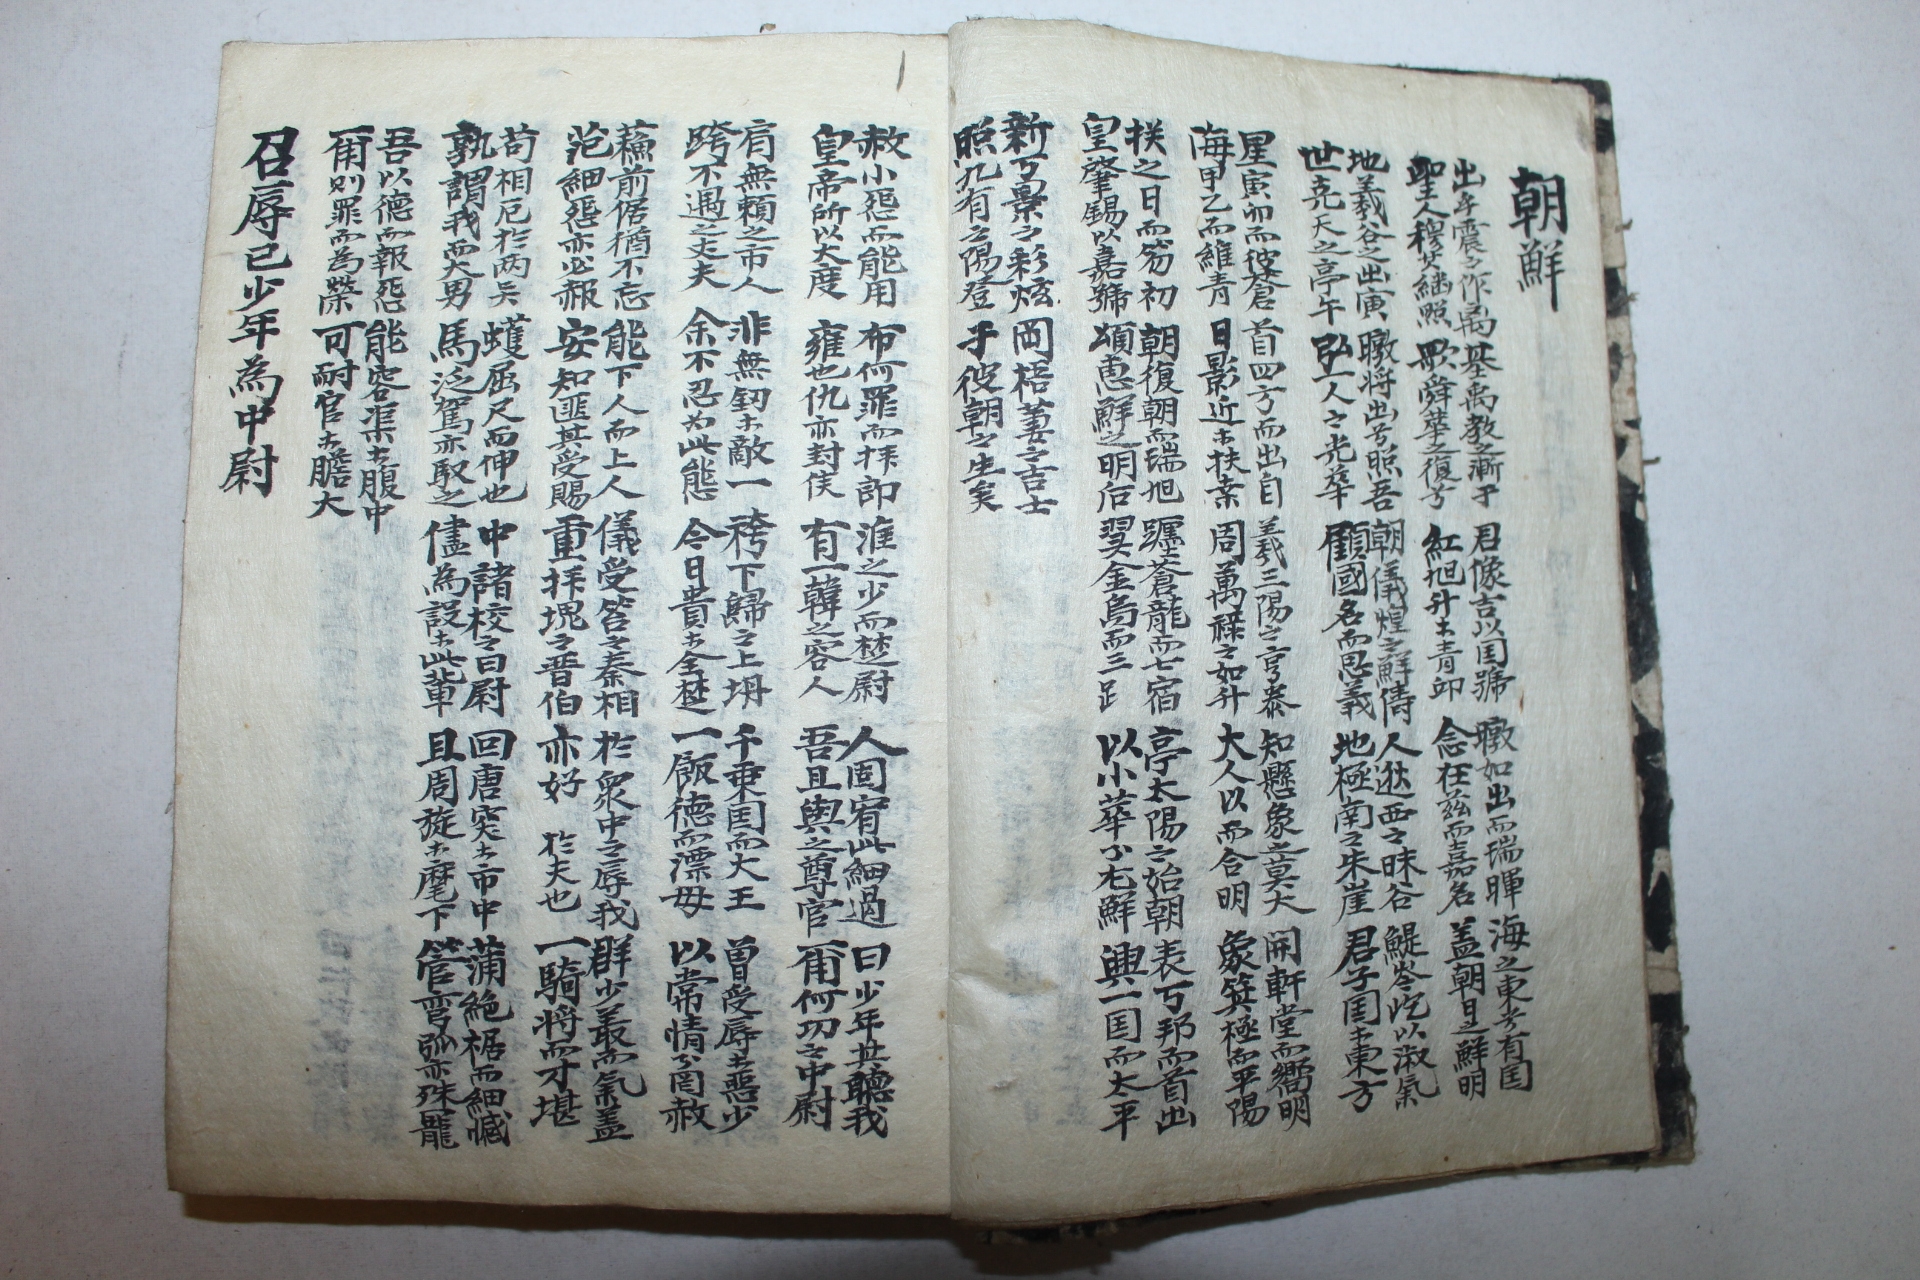 朝鮮
出乎震之作离 基禹教之漸乎 君像吉以国號 暾如出而瑞暉 海之東兮有国
聖人穆其繼照 歌舜華之復兮 紅旭升於青邱 念在茲而嘉名 盖朝日之鮮明
地羲谷之出寅 暾将出兮照吾 朝儀煌之鮮儔 人逖西之昧谷 鯷岑屹以淑氣
世堯天之亭午 弘一人之光華 顧國名而思義 地極南之朱崖 君子国於東方
星寅卯而彼蒼 首四方而出自 羲三陽之亨泰 知懸象之莫大 開軒堂而嚮明
海甲乙而維青 日影近於扶桒 周萬祿之如升 大人以而合明 象箕極而平陽
揆之日而笏初 朝復朝而瑞旭 躔蒼龍而七宿 亭太陽之始朝 表丂邦而首出
皇肇錫以嘉號 頌惠鮮之明后 翼金烏而三足 以小華尤鮮 興一国而太平
新丂景之彩炫 岡梧萋之吉士
照九有之陽登 于彼朝之生矣
赦小怨而能用 布何罪而拝卽 淮之少而楚尉 人固宥此細過 曰少年其聽我
皇帝所以大度 雍也仇亦封侯 有一韓之容人 吾且與之尊官 甭何功之中尉
肩無頼之市人 非無釰於敵一 袴下歸之上坍 千乗国而大王 曽受辱於惡少
跨不遇之丈夫 余不忍为此態 今日貴於全楚 一飯德而漂母 以常情兮罔赦
蘓前倨猶不忘 能下人而上人 儀受笞之秦相 於衆中之辱我 群少最而氣盖
范細怨亦必報 安知匪其受賜 重拝塊之晋伯 亦好 於夫也 一騎将而才堪
苟相厄於两矣 蠖屈尺而伸也 中諸校之曰尉 回唐突於市中 蒲絶裾而細憾
孰謂我而大男 馬泛駕亦馭之 儘為設於此軰 且周旋於麾下 管弯弧亦殊寵
吾以德而報怨 能容渠於腹中
甭則罪而為榮 可耐官於膽大
召辱己少年為中尉